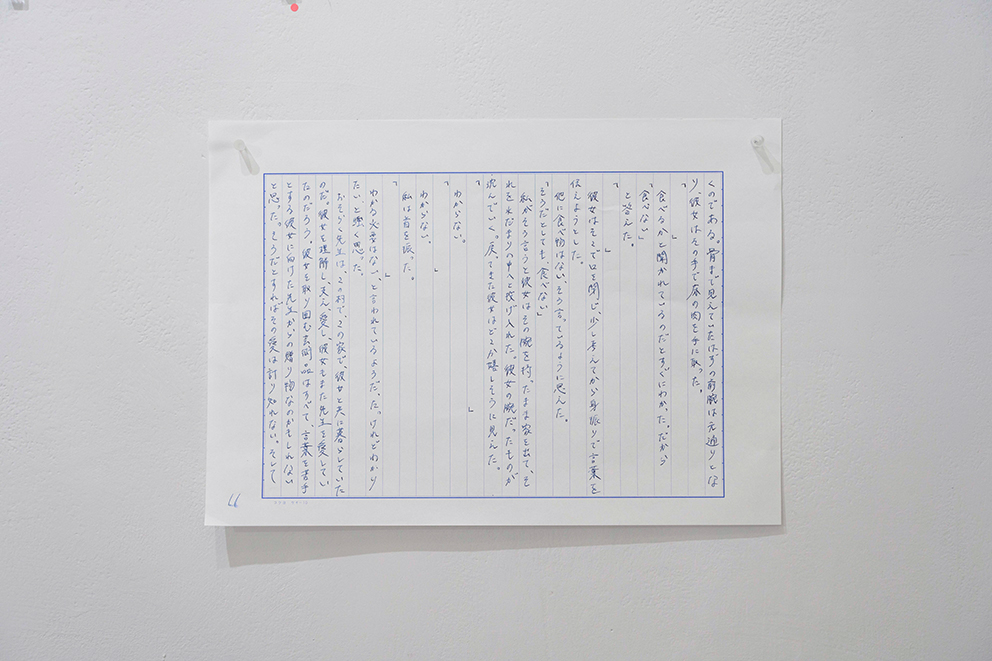 くのである。骨まで見えていたはずの前腕は元通りとな
り、彼女はその手で　の肉を手に取った。
「　　　」
食べるかと聞かれているのだとすぐにわかった。だから
「食べない」
と答えた。
「　　　」
彼女はそこで口を閉じ、少し考えてから身振りで言葉を
伝えようとした。
他に食べ物はない、そう言っているように思えた。
「そうだとしても、食べない」
私がそう言うと彼女はその腕を持ったまま家を出て、そ
れを水だまりの中へと投げ入れた。彼女の腕だったものが
沈んでいく。戻ってきた彼女はどこか嬉しそうに見えた。
「　　　」
わからない。
「　　　」
わからない。
私は首を振った。
「　　　」
わかる必要はない、と言われているようだ。だけれどわかり
たいと強く思った。
おそらく先生は、この村で、この家で、彼女と共に暮らしていた
のだ。彼女を理解し、支え、愛し、彼女もまた先生を愛してい
たのだろう。彼女を取り囲む　　品はすべて、言葉を苦手
とする彼女に向けた先生からの贈り物なのかもしれない
と思った。そうだとすればその愛は計り知れない。そして